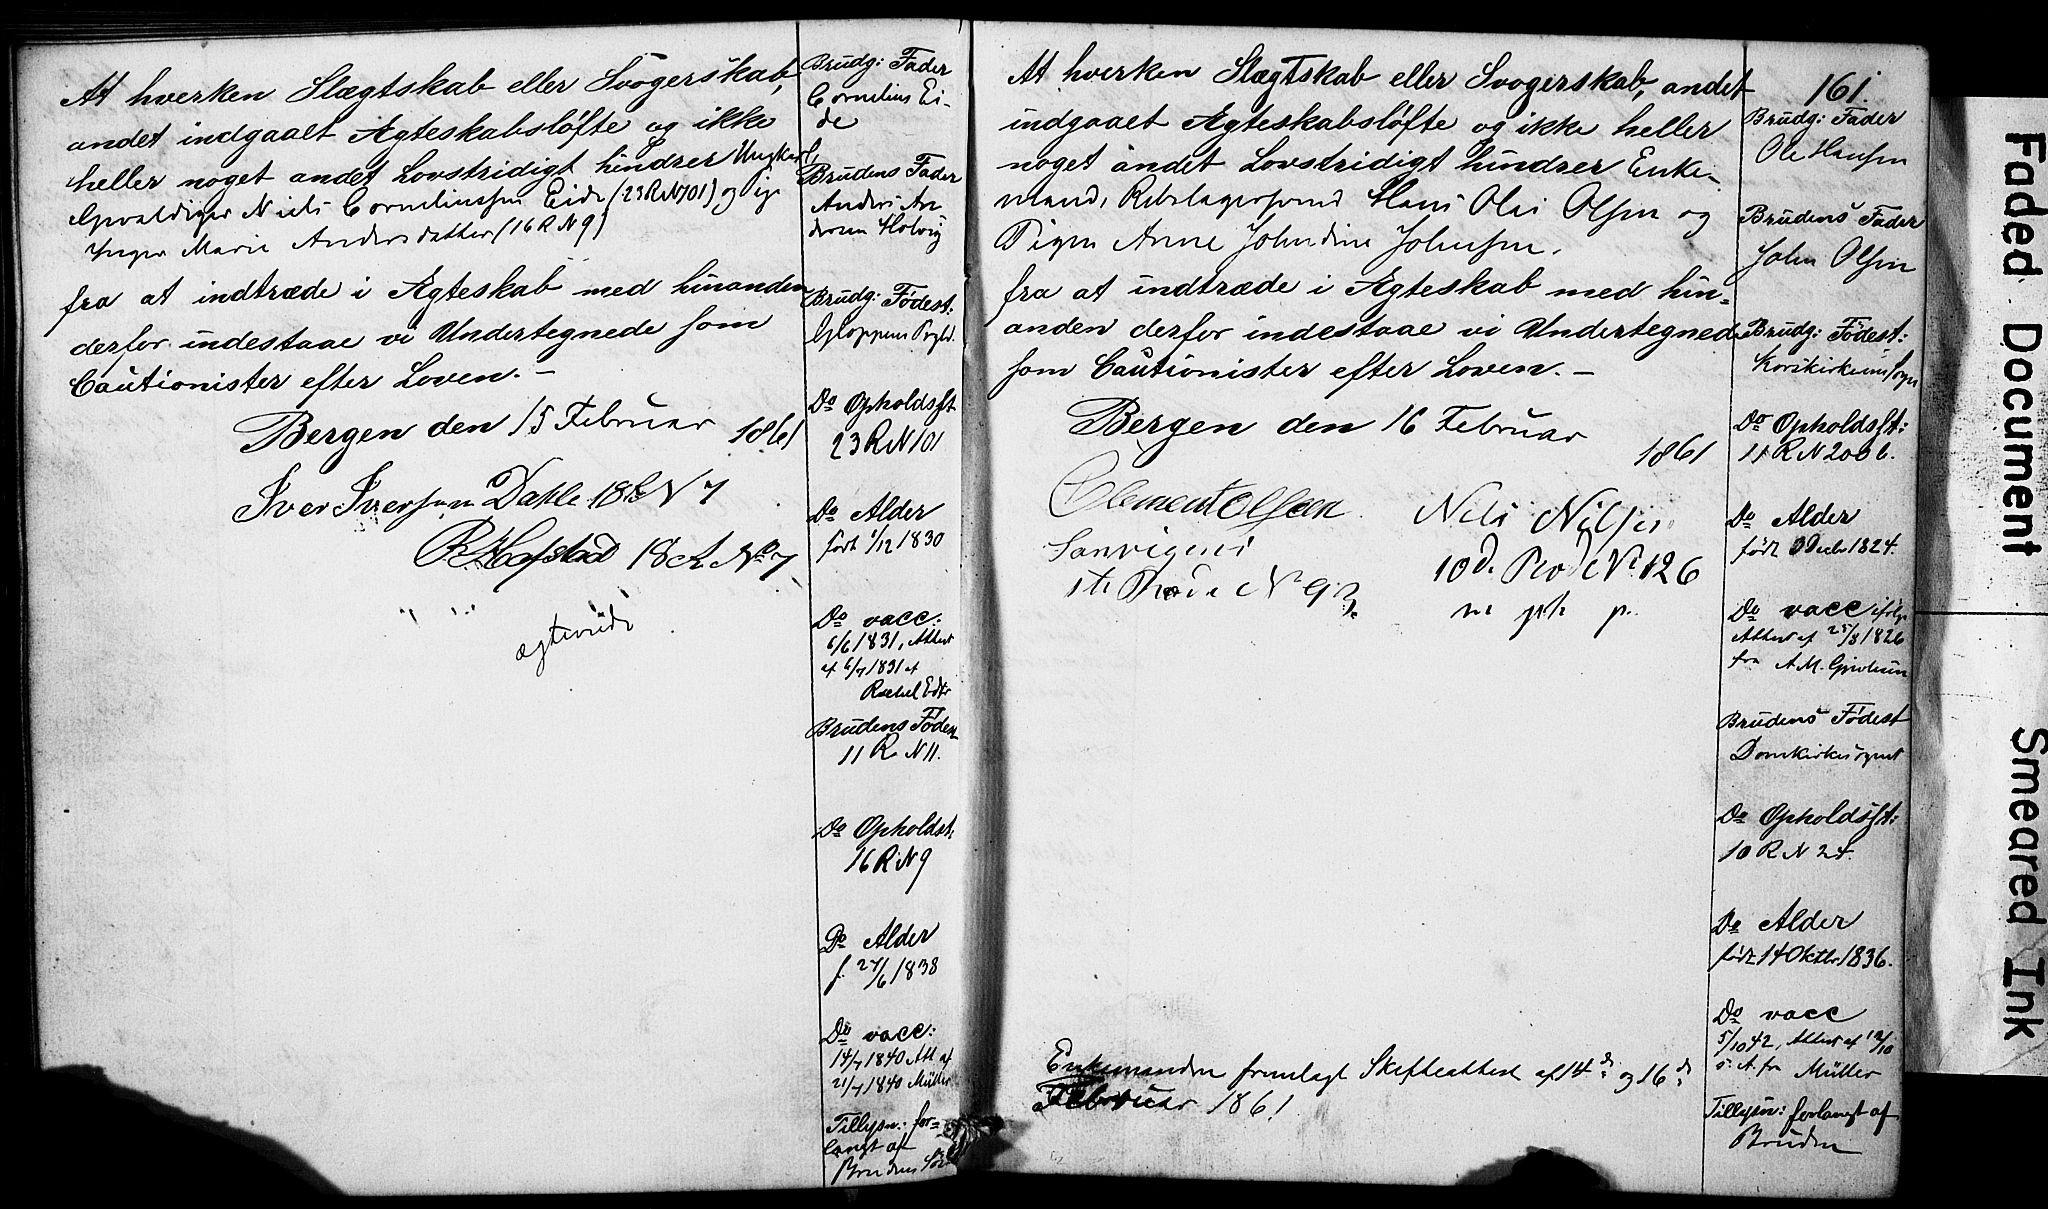 At hverken Slægtskab eller Svogerskab,
andet indgaaet Ægteskabsløfte og ikke
heller noget andet Lovstridigt hindrer Ungkarl,
Gevaldiger Niels Corneliussen Eide (23 R N 101) og Pige
Inger Marie Andersdatter (16 R N 9)
fra at indtræde i Ægteskab med hinanden
derfor indestaae vi Undertegnede som
Cautionister efter Loven. –
Bergen den 15 Februar 1861
Iver Iversen Dahle 18 R N 7
Hafstad 18 R No 7
ægteviede
Brudg: Fader
Cornelius Ei-
de
Brudens Fader
Anders An
dersen Holvig
Brudg: Fødest:
Gloppens Prgld.
Do Opholdsst
23 R N 101
Do Alder
født 1/12 1830
Do vacc:
6/6 1831, Attest
af 6/7 1831 af
Rachel Edtr
Brudens Fødest
11 R N 11.
Do Opholdst:
16 R N 9
Do Alder
f. 27/6 1838
Do vacc:
14/7 1840 Att af
21/7 1840 Müller
Tillysn: for=
langt af
Brudens
161.
At hverken Slægtskab eller Svogerskab, andet
indgaaet Ægteskabsløfte og ikke heller
noget andet Lovstridigt hindrer Enke-
mand, Rebslagersvend Hans Olai Olsen og
Pigen Anne Johndine Johnsen.
fra at indtræde i Ægteskab med hin=
anden derfor indestaae vi Undertegnede
som Cautionister efter Loven. –
Bergen den 16 Februar 1861
Clement Olsen Nils Nilsen
Sanvigens 10d. Rode No 126
1te Rode No 93. m p h p.
Enkemanden fremlagt Skifteattest af 14d. og 16d.
Februar 1861.
Brudg: Fader
Ole Hansen
Brudens Fader
John Olsen
Brudg: Fødest:
Korskirkens Sogn
Do Opholdsst:
11 R N 200 b.
Do Alder
født 3 Decbr 1824.
Do vacc ifølge
Attest af 25/8 1826
fra A M.
Brudens Fødest
Domkirkesognet
Do Opholdsst:
10 R N 24.
Do Alder
født 14 Oktbr 1836.
Do vacc
5/10 42, Attest af 12/10
s. A. fra Müller
Tillysn: forlangt af
Bruden
Faded Document
Smeared Ink